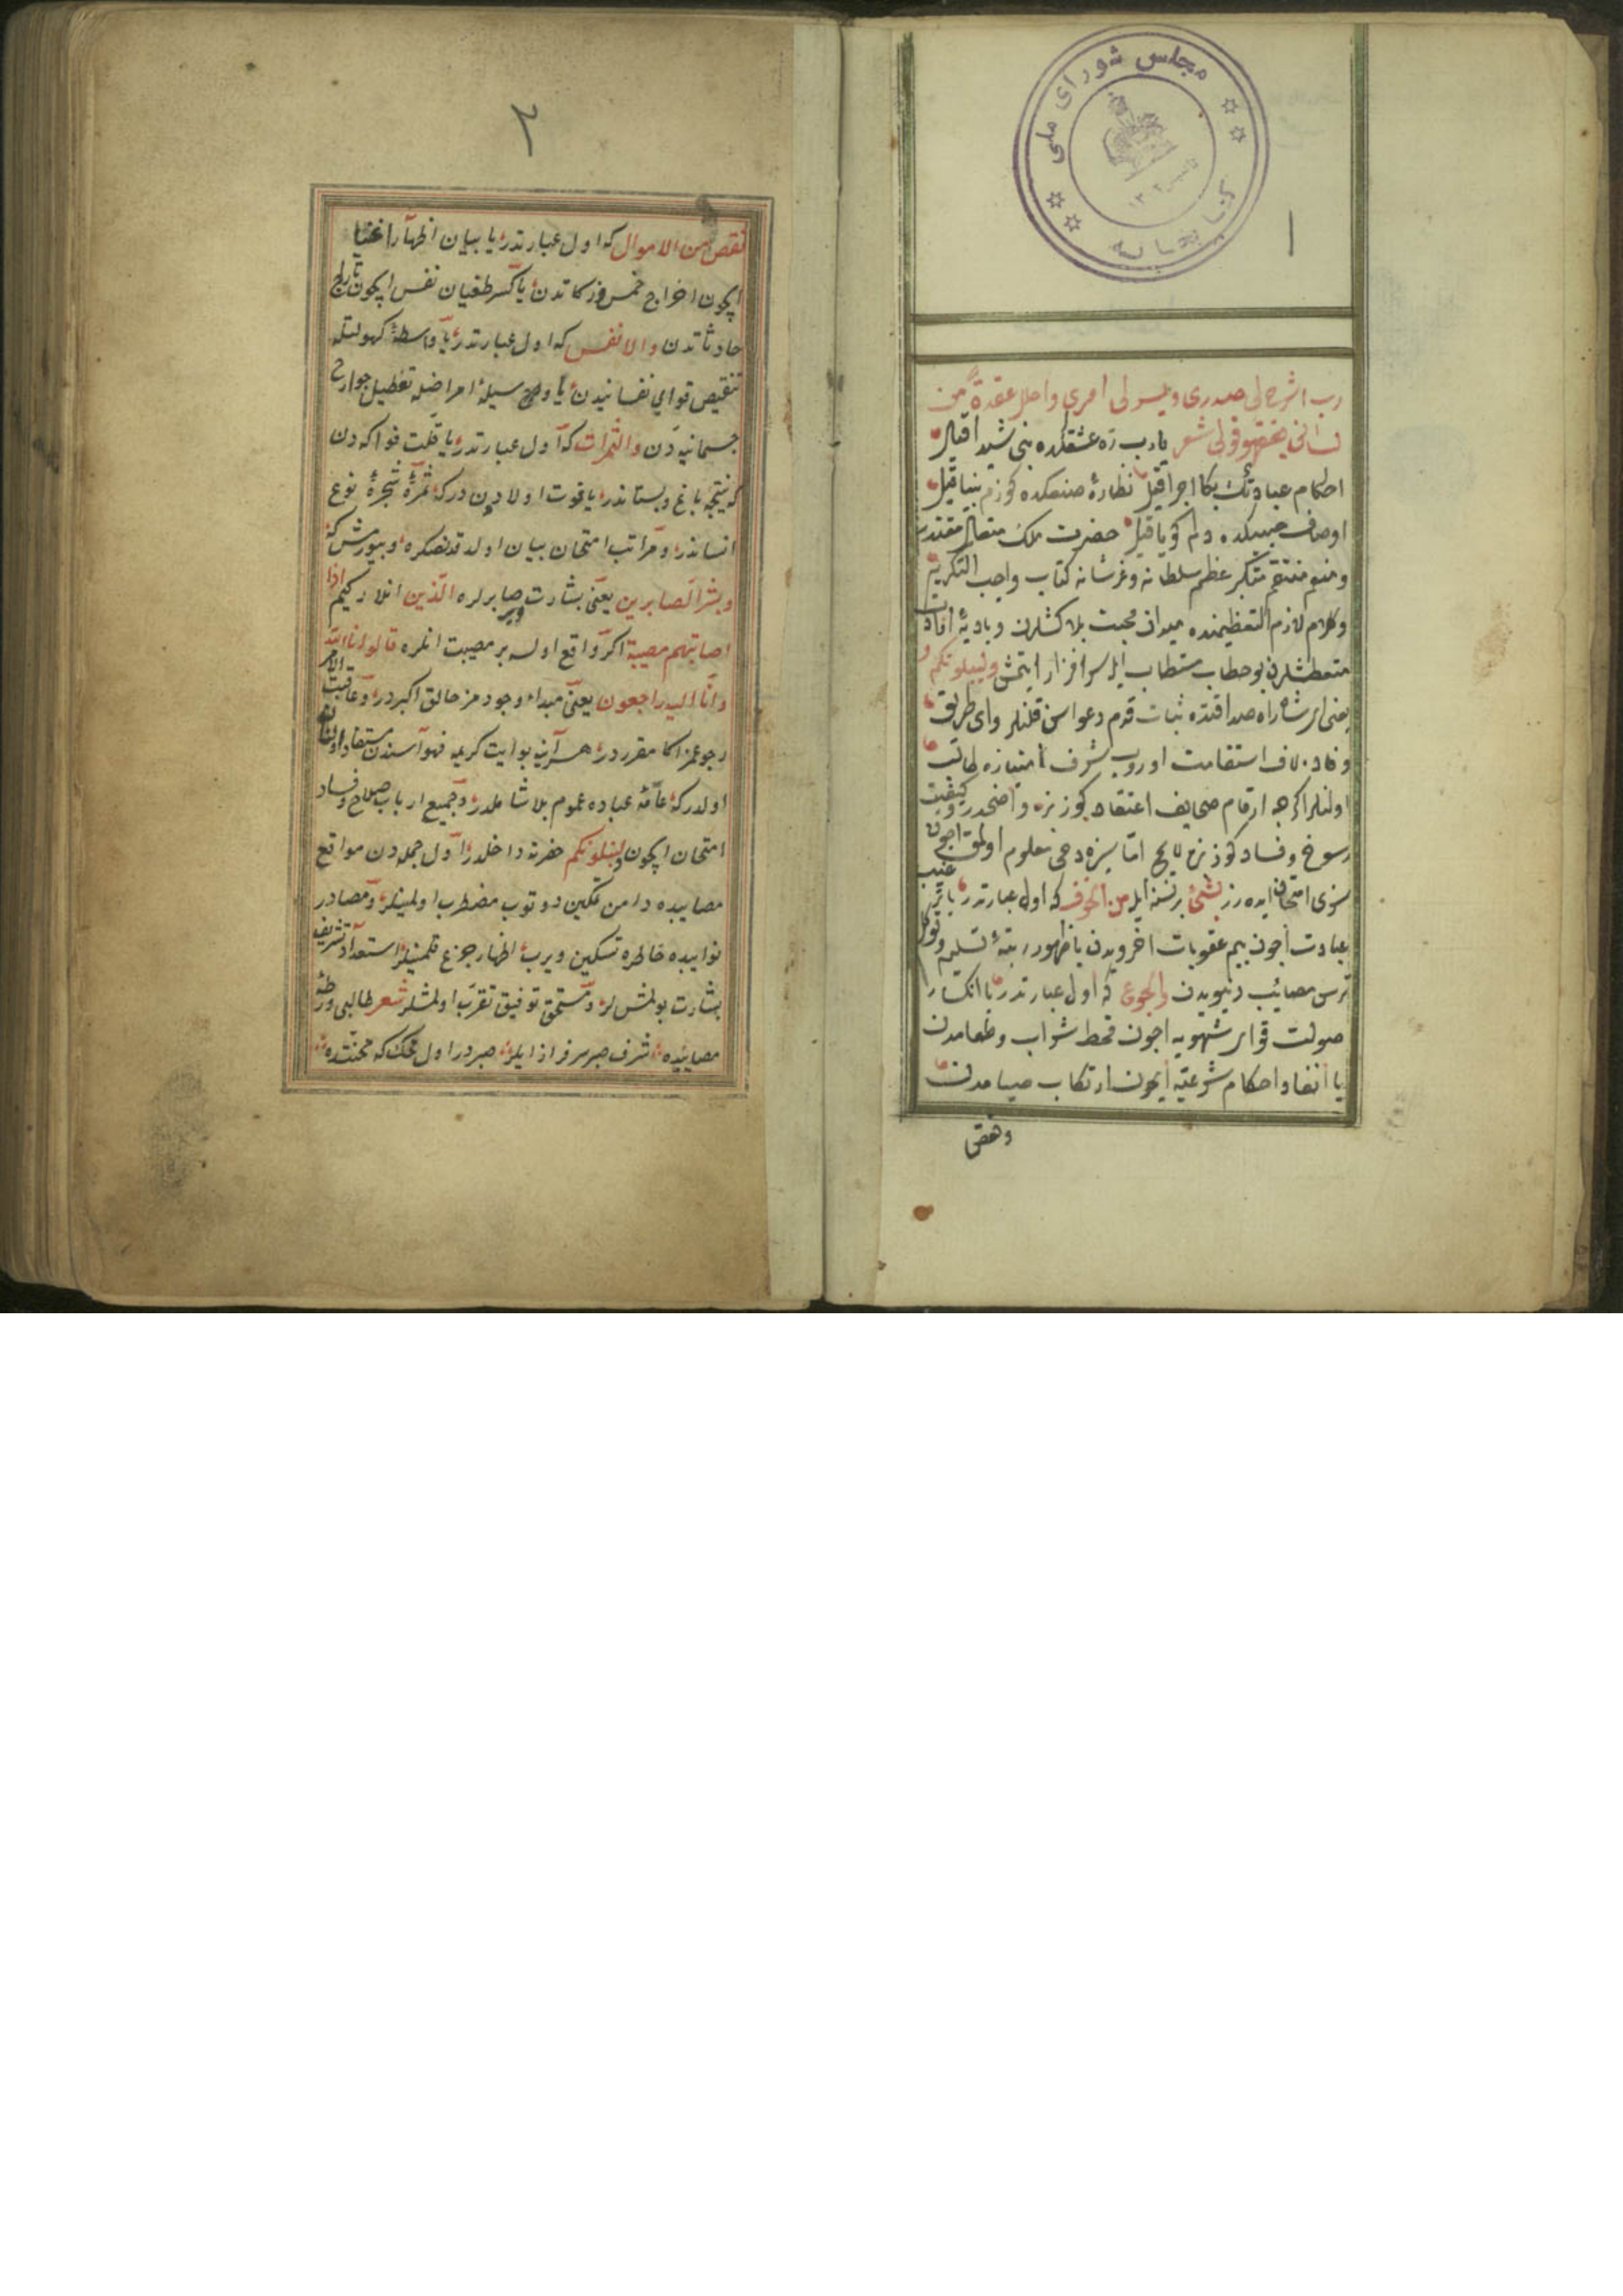 مجلس شورای ملی
کتابخانه
۱
رب اشرح لی صدری ویسر لی امری واحلل عقدة من
لسانی یفقهوا قولی شعر یا رب ره عشقکده بنی شیدا قیل
احکام عبادتک بکا اجرا قیل نظارهٔ صنعکده کوزم بینا قیل
اوصاف حبیبکده دلم کویا قیل حضرت ملک متعال مقتدر
ومنعم منتقم متکبر عظم سلطانه وعز شانه کتاب واجب التکریم
وکلام لازم التعظیمنده میدان محبت بلاکشلرن وبادیهٔ آفات
متعطشلرن بو خطاب مستطاب ایله سرافراز ایتمش ولنبلونکم
یعنی ای شاه راه صداقتده ثبات قدم دعواسن قلنلر وای طریق
وفاده لاف استقامت اوروب شرف امتیازه طالب
اولنلر اکرچه ارقام صحایف اعتقادکوز بزه واضحدر وکیفیت
رسوخ وفسادکوز بزه لایح اما سزه دخی معلوم اولمق اچون
سزی امتحان ایده رز بشیٔ بر نسنه ایله من الخوف که اول عبارتدر یا
عبادت اچون بیم عقوبات اخرویدن یا ظهور رتبهٔ تسلیم وتوکل
ترس مصائب دنیویدن والجوع که اول عبارتدر یا انکسار
صولت قوای شهویه اچون قحط شراب وطعامدن
یا انفاذ احکام شرعیّه ایچون ارتکاب صیامدن
ونقص
۲
نقص من الاموال که اول عبارتدر یا بیان اظهار اغنیا
ایچون اخراج خمس وزکاتدن یا کسر طغیان نفس ایچون تاراج
حادثاتدن والانفس که اول عبارتدر یا واسطهٔ کهولتله
تنقیص قوای نفسانیدن یا وسیلهٔ امراضله تعطیل جوارح
جسمانیه دن والثمرات که اول عبارتدر یا قلت فواکه دن
که نتیجهٔ باغ وبستانذر یا فوت اولاددن درکه ثمرهٔ شجرهٔ نوع
انساندر ومراتب امتحان بیان اولدقدنصکره وبیورمش که
وبشر الصابرین یعنی بشارت ویر صابرلره الذین انلار کیم اذا
اصابتهم مصیبة اکر واقع اولسه بر مصیبت انلره قالوا انا لله
وانا الیه راجعون یعنی مبداء وجودمز خالق اکبردر وعاقبت الامر
رجوعمز اکا مقرردر هر آینه بو آیت کریمه فهواسندن مستفاد اولنان
اولدرکه عامّهٔ عباده عموم بلا شاملدر وجمیع ارباب صلاح وفساد
امتحان ایچون ولنبلونکم حضرنه داخلدر اول جمله دن مواقع
مصایبده دامن تمکین دوتوب مضطرب اولمینلر ومصادر
نوایبده خاطره تسکین ویرب اظهار جزع قلمینلر استعداد تشریف
بشارت بولمش لر ومستحق توفیق تقرب اولمشلر شعر طالبی ورطهٔ
مصایبده شرف صبر سرفراز ایلر صبردر اول محک که محنتده